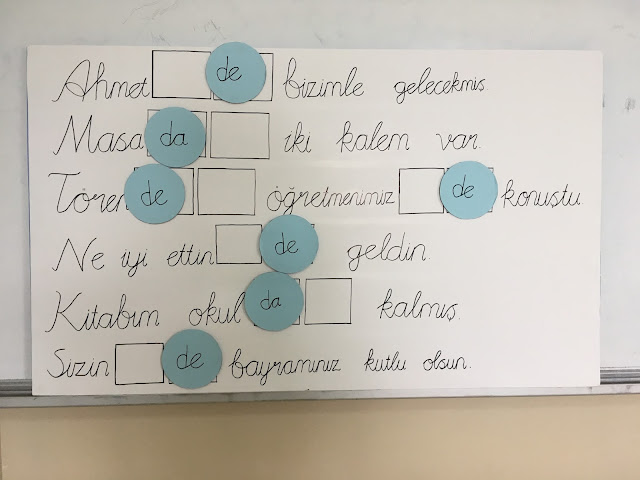 Ahmet de bizimle gelecekmiş.
Masa da iki kalem var.
Tören de öğretmenimiz de konuştu
Ne iyi ettin de geldin.
Kitabım okul da kalmış.
Sizin de bayramınız kutlu olsun.